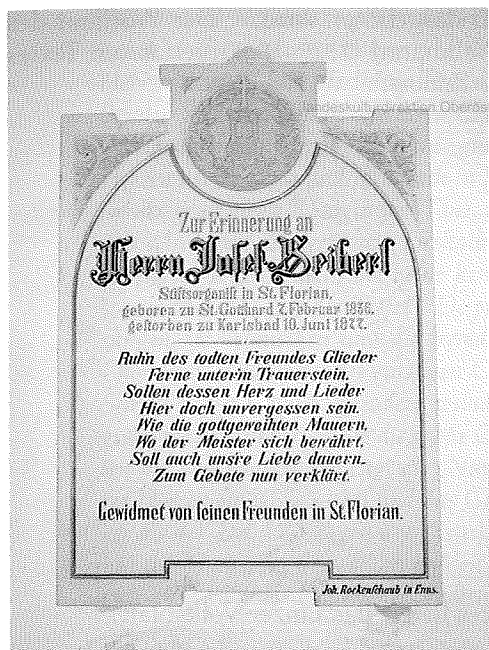 Landeskulturdirektion Oberös
Zur Erinnerung an
Herrn Josef Seiberl
Stiftsorganist in St. Florian,
geboren zu St. Gotthard 7. Februar 1836,
gestorben zu Karlsbad 10. Juni 1877.
Ruh'n des todten Freundes Glieder
Ferne unter'm Trauerstein,
Sollen dessen Herz und Lieder
Hier doch unvergessen sein.
Wie die gottgeweihten Mauern,
Wo der Meister sich bewährt,
Soll auch uns're Liebe dauern_
Zum Gebete nun verklärt.
Gewidmet von seinen Freunden in St. Florian.
Joh. Rockenschaub in Enns.